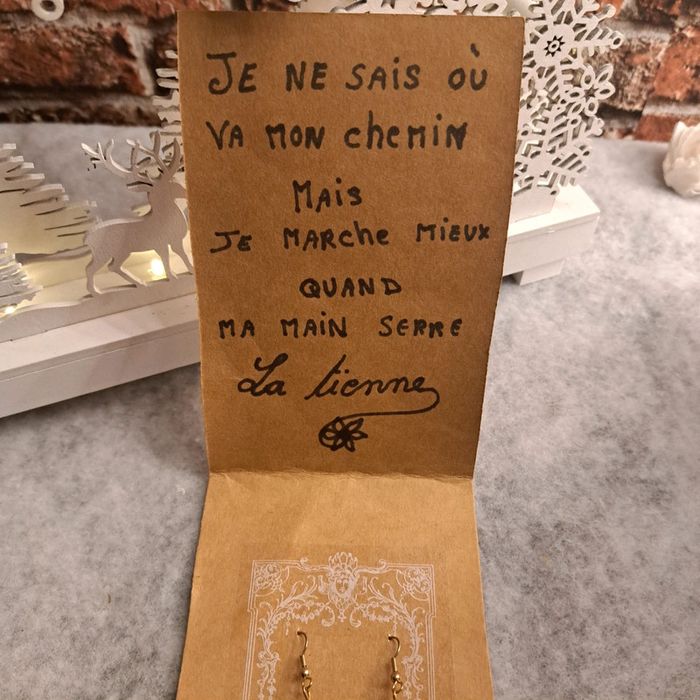 JE NE SAIS OÙ
VA MON CHEMIN
MAIS
JE MARCHE MIEUX
QUAND
MA MAIN SERRE
La tienne